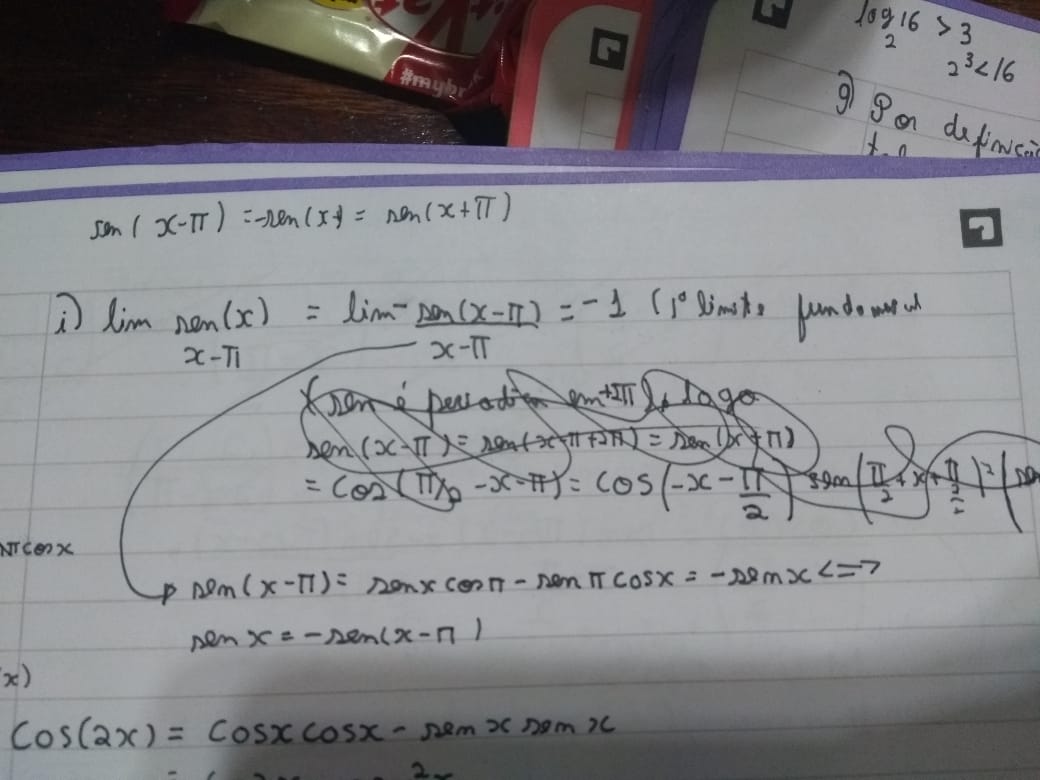 #mybr
log₂16 > 3
2³<16
g) Por definição
sen(x-π) = -sen(x) = sen(x+π)
i) lim sen(x)/x-π = lim - sen(x-π)/x-π = -1 (1º limite fundamental
sen é em +2π logo
sen(x-π) = sen(x-π+2π) = sen(x+π)
= cos(π/2 -x-π) = cos(-x-π/2) sen(π/2+x+π/2)
πcosx
sen(x-π) = senx cosπ - senπ cosx = -senx <=>
senx = -sen(x-π)
x)
Cos(2x) = Cosx cosx - senx senx